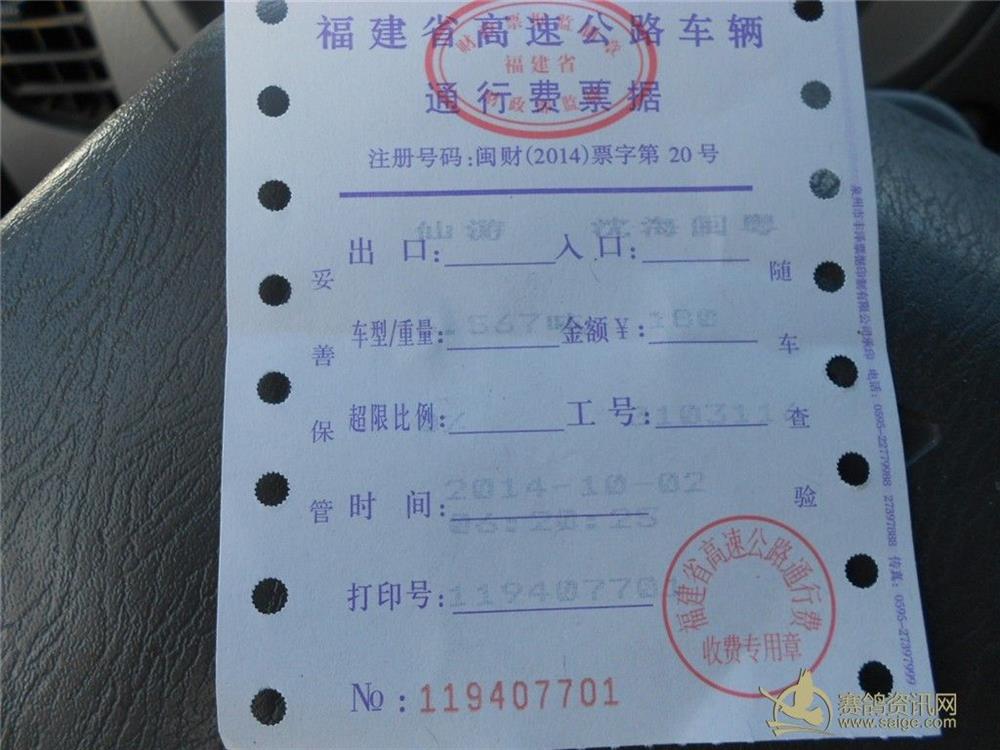 福建省高速公路车辆
通行费票据
福建省
注册号码:闽财(2014)票字第 20 号
出 口: 仙游 入 口: 沈海闽粤
车型/重量: 金额￥:
超限比例: 工 号:
时 间: 2014-10-02
06:20:25
打印号: 119407701
№ : 119407701
妥善保管
随车查验
泉州市丰泽票据印制有限公司承印 电话: 0595-22779888 27397888 传真: 0595-27397999
福建省高速公路通行费
收费专用章
赛鸽资讯网
www.saige.com